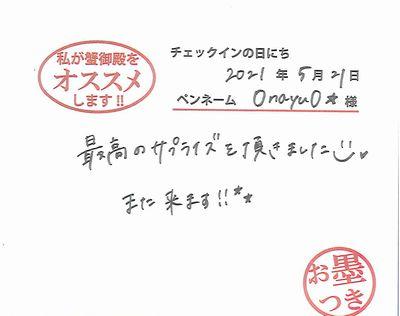 私が蟹御殿を
オススメ
します!!
チェックインの日にち
2021年5月21日
ペンネーム OnayuO★ 様
最高のサプライズを頂きました
また来ます!!**
お墨つき